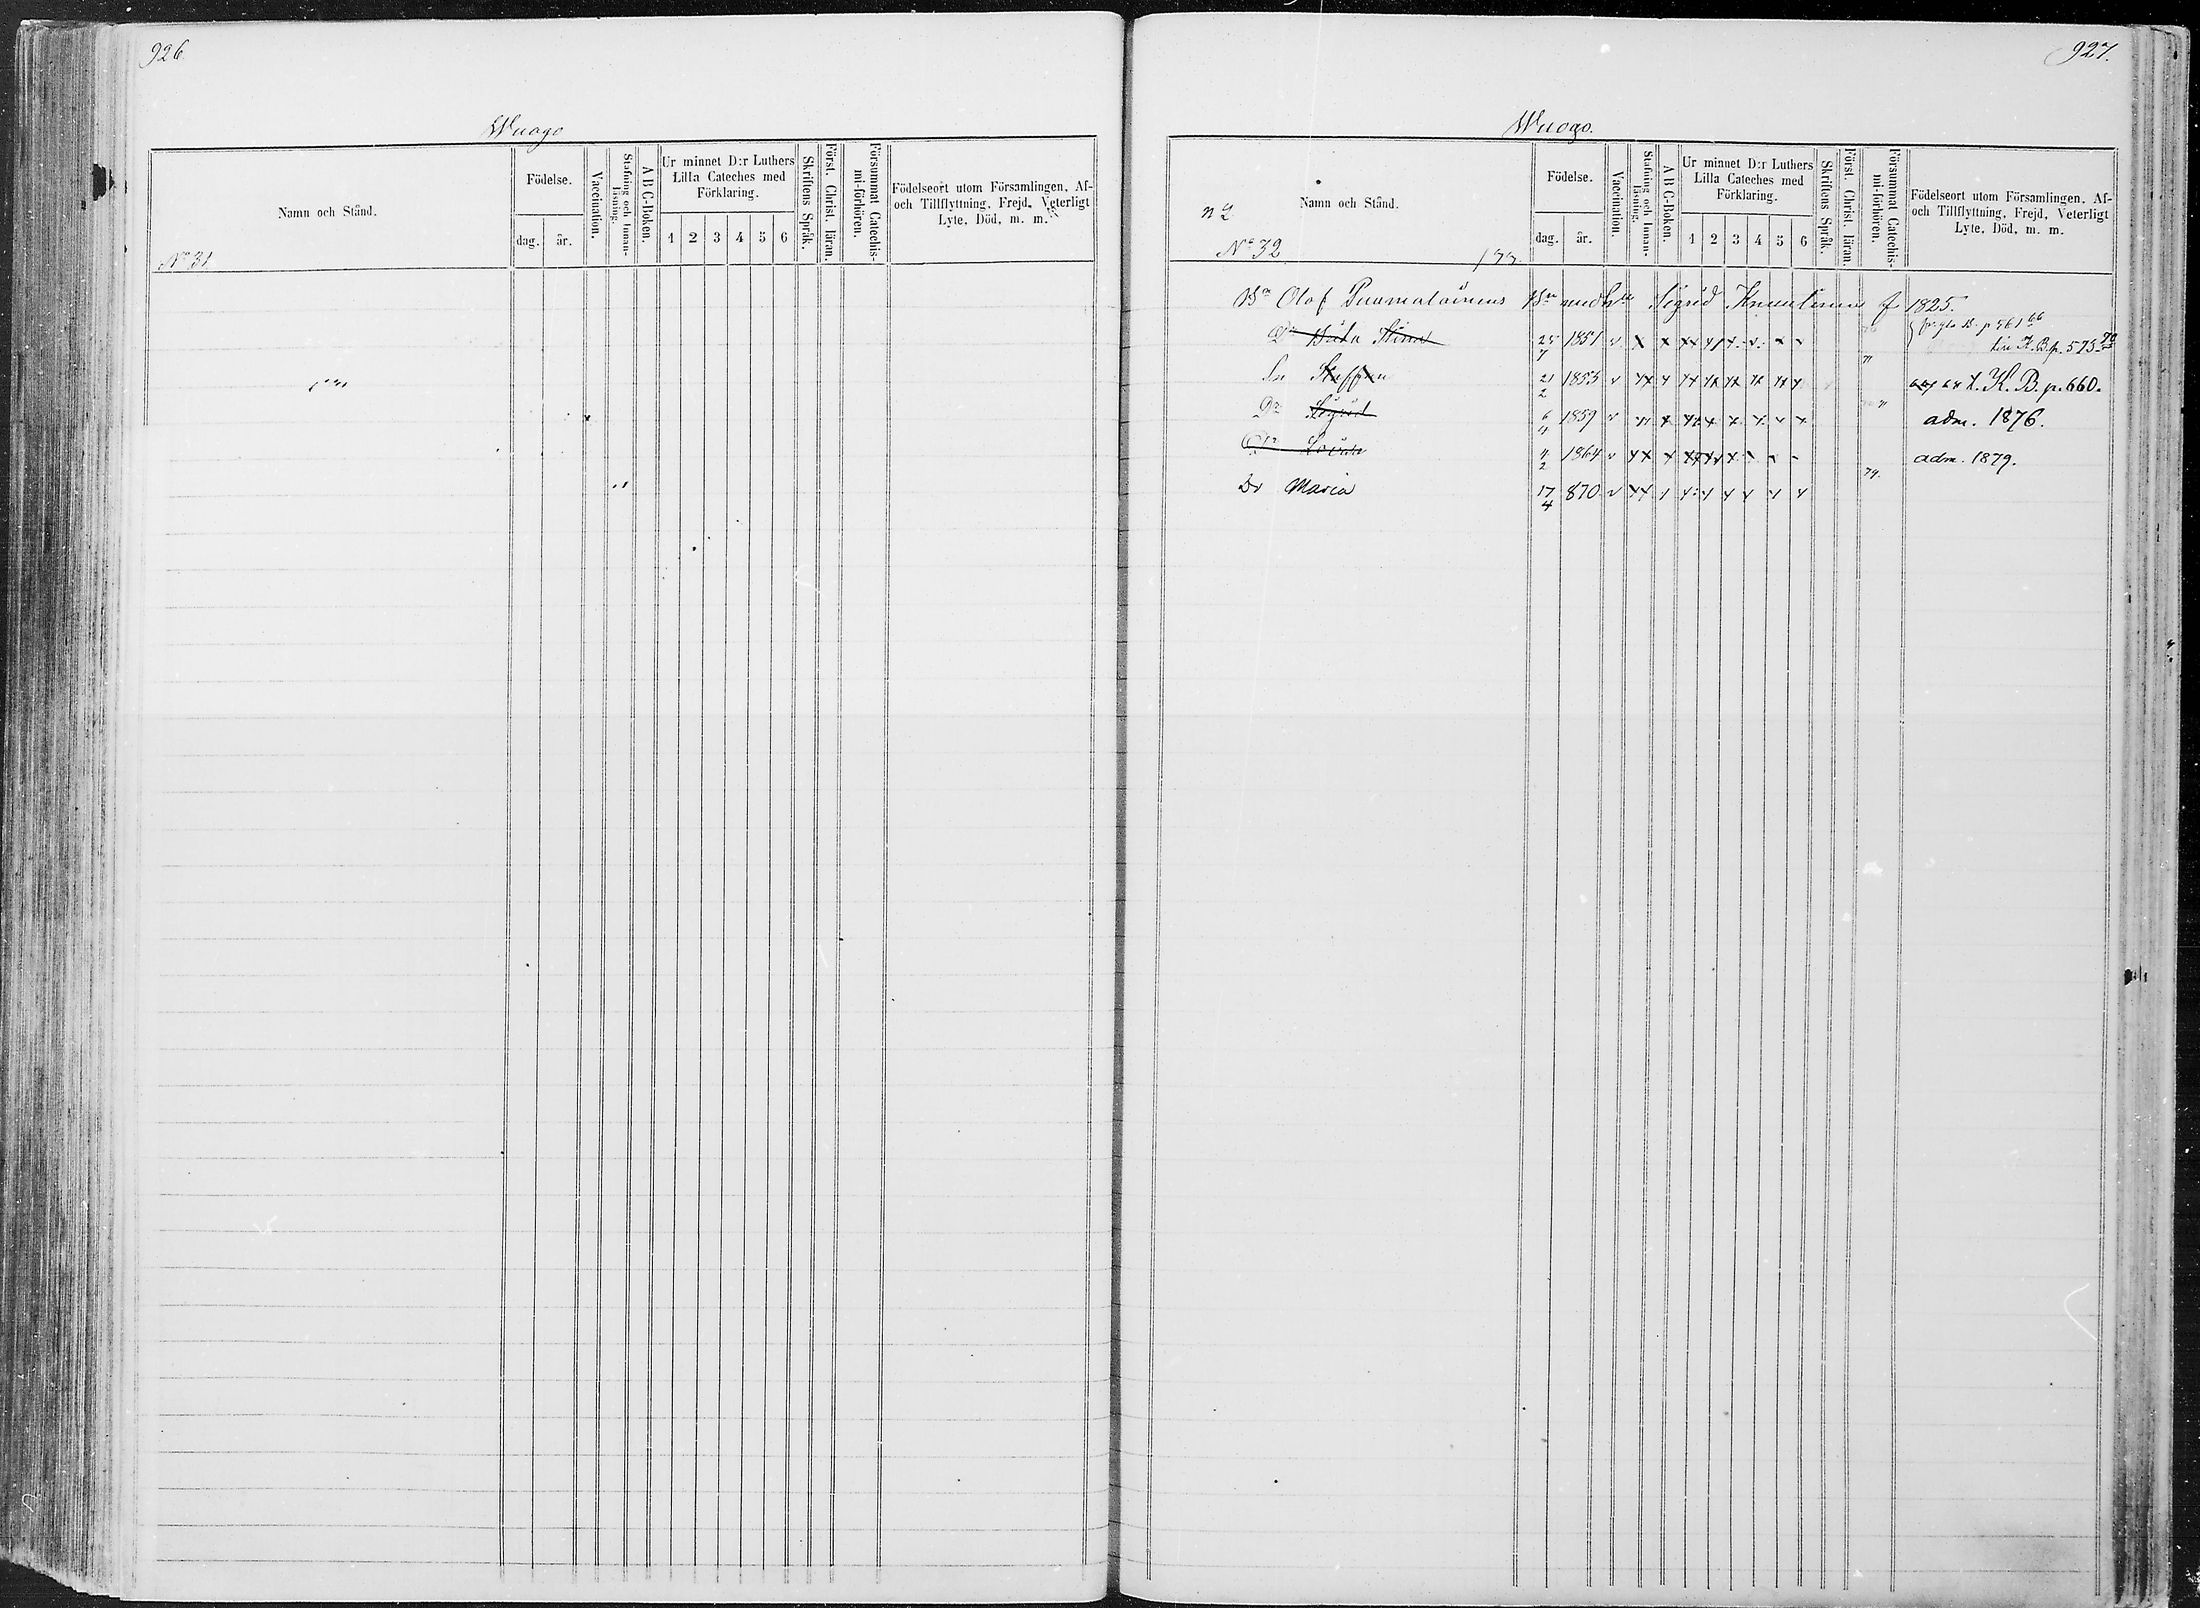 926.
Wuogo
Namn och Stånd.
Födelse.
dag.
år.
Vaccination.
Stafning och Innan-läsning.
A B C-Boken.
Ur minnet D:r Luthers
Lilla Cateches med
Förklaring.
1 2 3 4 5 6
Skriftens Språk.
Först. Christ. läran.
Försummat Catechis-mi-förhören.
Födelseort utom Församlingen, Af-
och Tillflyttning, Frejd, Veterligt
Lyte, Död, m. m.
No 31
927.
Wuogo.
n 2
Namn och Stånd.
Födelse.
dag.
år.
Vaccination.
Stafning och Innan-läsning.
A B C-Boken.
Ur minnet D:r Luthers
Lilla Cateches med
Förklaring.
1 2 3 4 5 6
Skriftens Språk.
Först. Christ. läran.
Försummat Catechis-mi-förhören.
Födelseort utom Församlingen, Af-
och Tillflyttning, Frejd, Veterligt
Lyte, Död, m. m.
No 32
Bn Olof Puumalainens Bn med Sigrid f 1825.
Dr Stina 25/7 1851 p 561 66
K. B. p. 575 70
Sn Staffan 21/2 1853 t. K. B. p. 660.
Dr Sigrid 6/4 1859 adm. 1876.
Dr Lovisa 4/2 1864 adm. 1879.
Dr Maria 17/4 870 79.